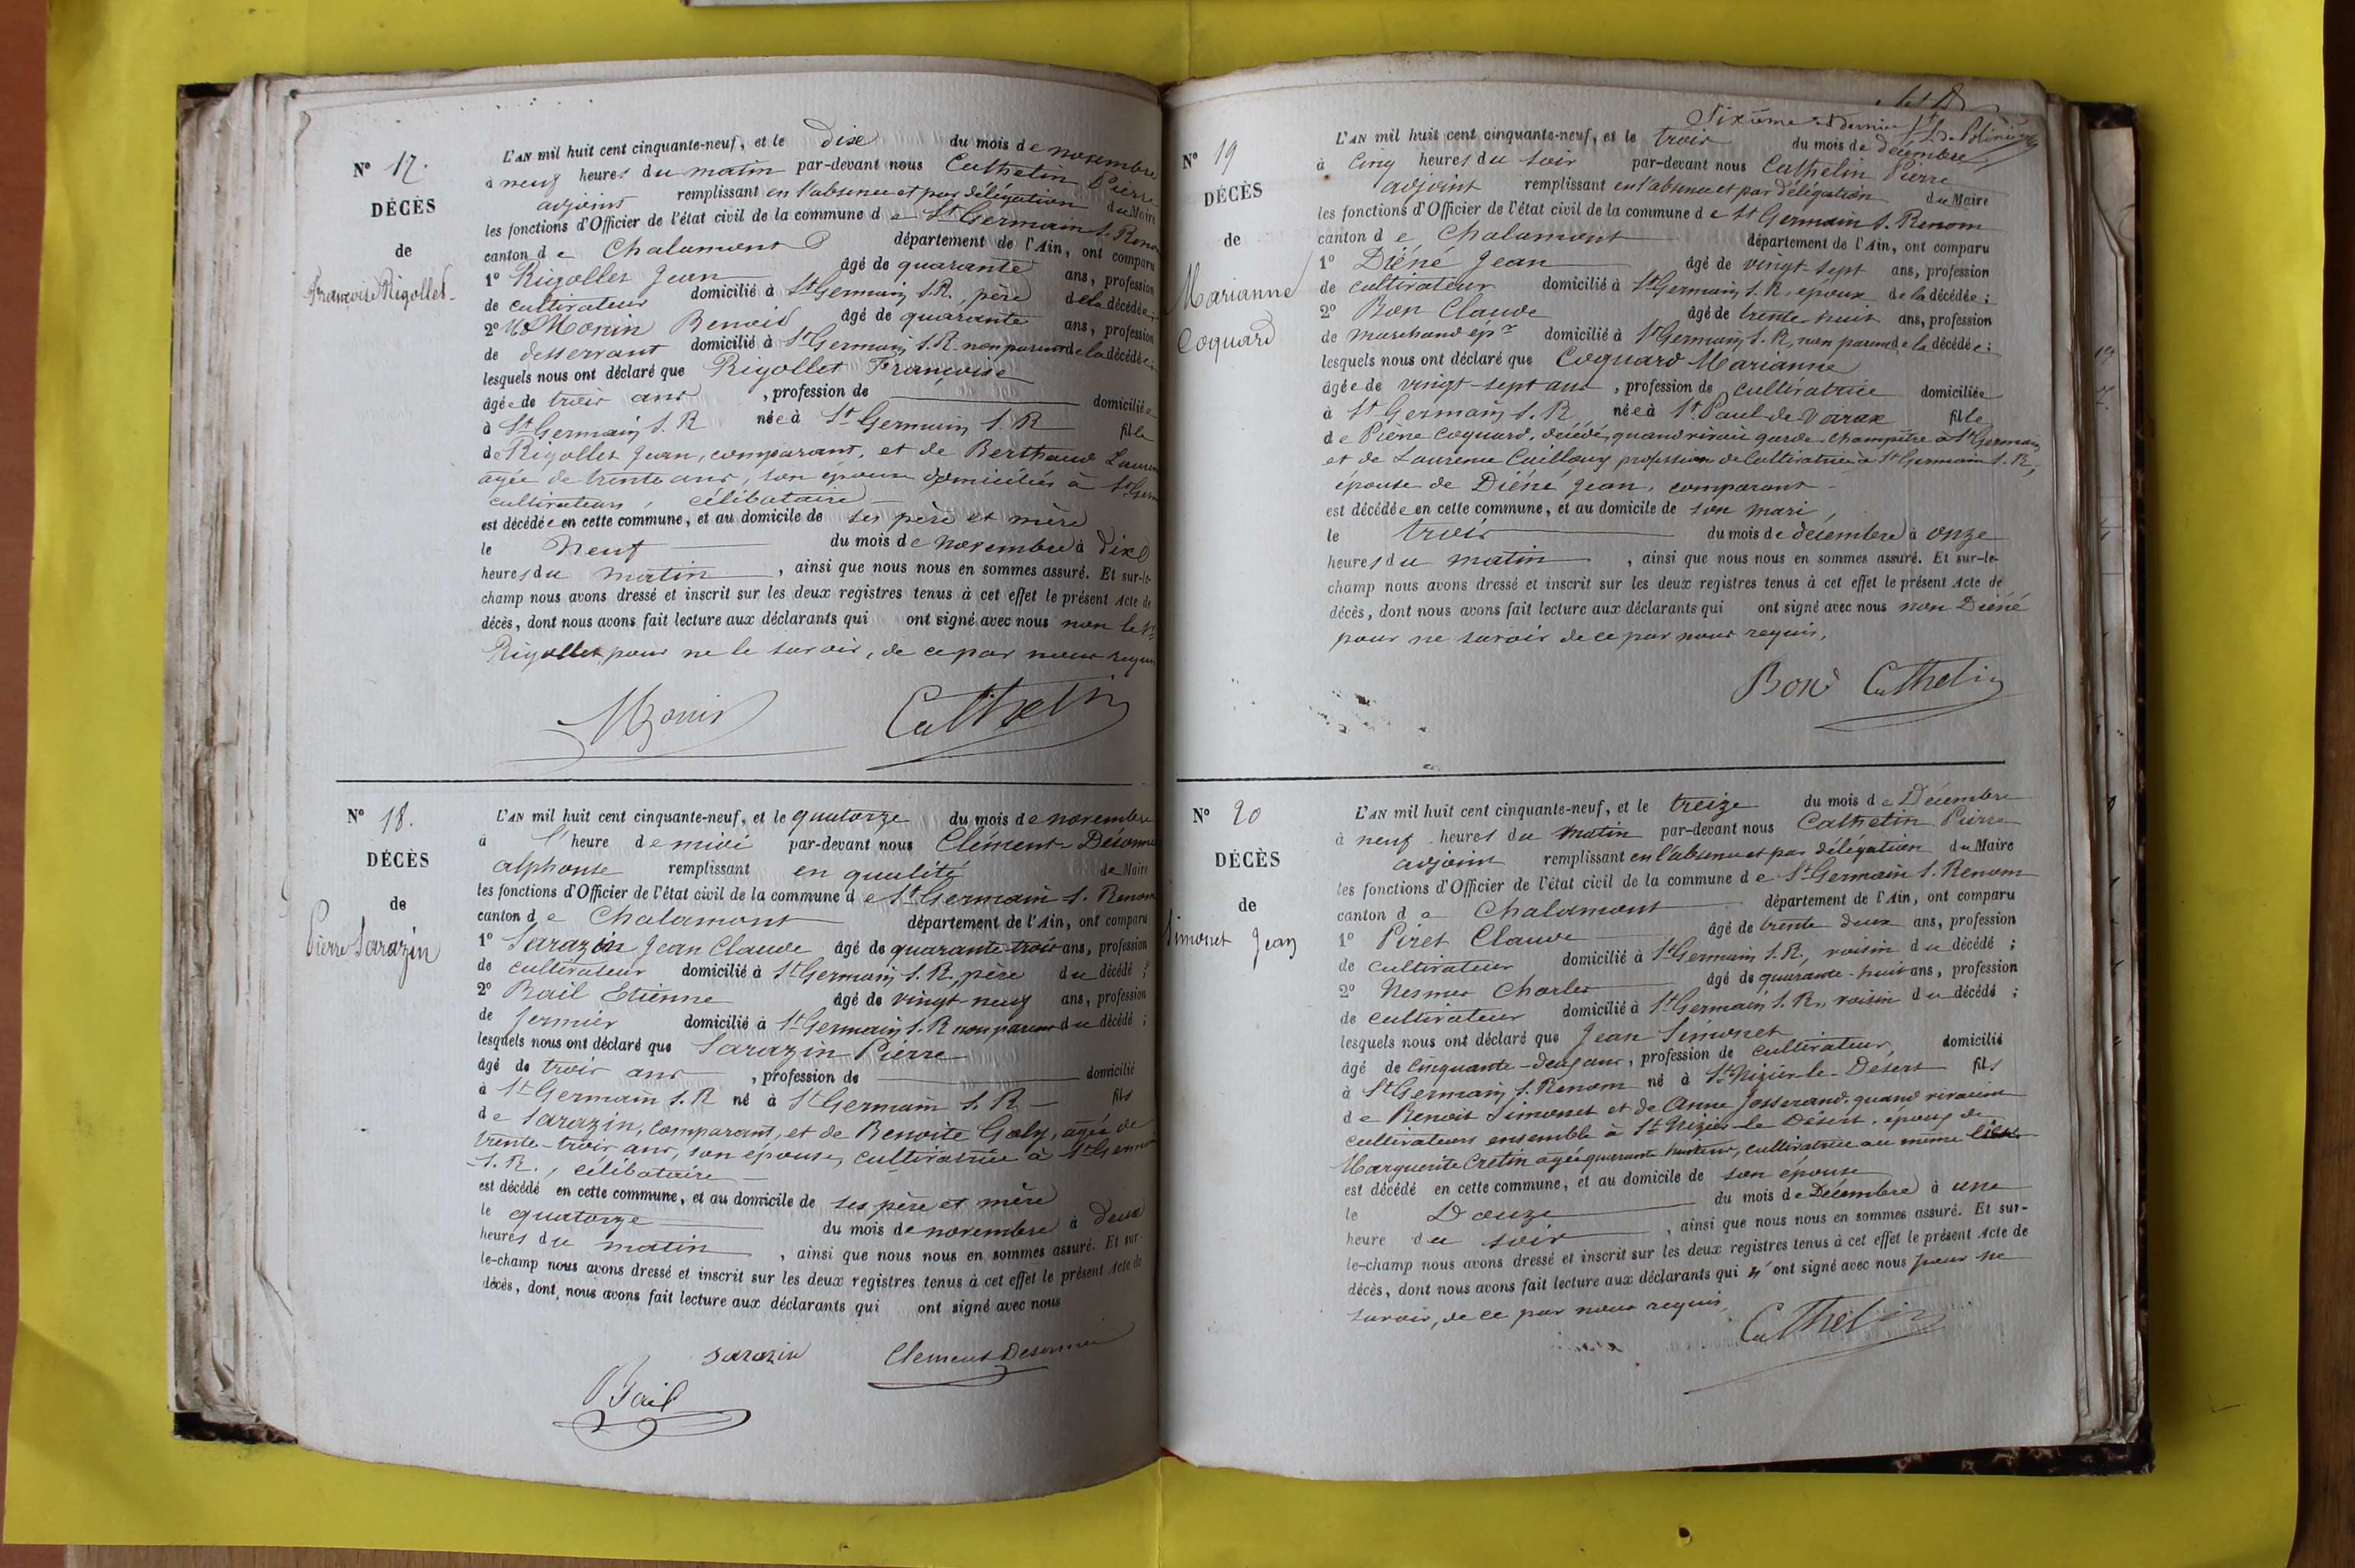 N° 17.
DÉCÈS
de
Françoise Rigollet
L'AN mil huit cent cinquante-neuf, et le dix du mois de novembre
à neuf heures du matin par-devant nous Cathelin Pierre
adjoint remplissant en l'absence et par délégation du Maire
les fonctions d'Officier de l'état civil de la commune de St Germain S. Renom
canton de Chalamont département de l'Ain, ont comparu
1° Rigollet Jean âgé de quarante ans, profession
de cultivateur domicilié à St Germain S. R., père de la décédée;
2° Monin Benoid âgé de quarante ans, profession
de desservant domicilié à St Germain S. R. non parent de la décédée;
lesquels nous ont déclaré que Rigollet Françoise
âgée de trois ans , profession de domiciliée
à St Germain S. R née à St Germain S. R fille
de Rigollet Jean, comparant, et de Berthaud
agée de trente ans, son épouse domiciliés à St Germ
cultivateurs, célibataire
est décédée en cette commune, et au domicile de ses père et mère
le neuf du mois de novembre à dix
heures du matin , ainsi que nous nous en sommes assuré. Et sur-le-
champ nous avons dressé et inscrit sur les deux registres tenus à cet effet le présent Acte de
décès, dont nous avons fait lecture aux déclarants qui ont signé avec nous non le Sr
Rigollet pour ne le savoir, de ce par nous requis
Monin Cathelin
N° 18.
DÉCÈS
de
Pierre Sarazin
L'AN mil huit cent cinquante-neuf, et le quatorze du mois de novembre
à l'heure de midi par-devant nous Clément-Désormes
alphonse remplissant en qualité de Maire
les fonctions d'Officier de l'état civil de la commune de St Germain S. Renom
canton de Chalamont département de l'Ain, ont comparu
1° Sarazin Jean Claude âgé de quarante-trois ans, profession
de cultivateur domicilié à St Germain S. R., père du décédé;
2° Bail Etienne âgé de vingt-neuf ans, profession
de fermier domicilié à St Germain S. R non parent du décédé;
lesquels nous ont déclaré que Sarazin Pierre
âgé de trois ans , profession de domicilié
à St Germain S. R né à St Germain S. R fils
de Sarazin, comparant, et de Benoite Galy, agée de
trente-trois ans, son epouse, cultivatrice à St Germain
S. R., célibataire
est décédé en cette commune, et au domicile de ses père et mère
le quatorze du mois de novembre à deux
heures du matin , ainsi que nous nous en sommes assuré. Et sur-
le-champ nous avons dressé et inscrit sur les deux registres tenus à cet effet le présent Acte de
décès, dont nous avons fait lecture aux déclarants qui ont signé avec nous
Sarazin Clement Desormes
Bail
Sixième et dernier
N° 19
DÉCÈS
de
Marianne
Coquard
L'AN mil huit cent cinquante-neuf, et le trois du mois de décembre,
à Cinq heures du soir par-devant nous Cathelin Pierre
adjoint remplissant en l'absence et par délégation du Maire
les fonctions d'Officier de l'état civil de la commune de St Germain S. Renom
canton de Chalamont département de l'Ain, ont comparu
1° Diéné Jean âgé de vingt-sept ans, profession
de cultivateur domicilié à St Germain S. R, époux de la décédée;
2° Bon Claude âgé de trente-huit ans, profession
de marchand épr domicilié à St Germain S. R, non parent de la décédée;
lesquels nous ont déclaré que Coquard Marianne
âgée de vingt-sept ans , profession de cultivatrice domiciliée
à St Germain S. R née à St Paul de Varax fille
de Pierre Coquard, décédé, quand vivait garde-champêtre à St Germain
et de Laurence profession de Cultivatrice à St Germain S. R,
épouse de Diéné Jean, comparant
est décédée en cette commune, et au domicile de son mari,
le trois du mois de décembre à onze
heures du matin , ainsi que nous nous en sommes assuré. Et sur-le-
champ nous avons dressé et inscrit sur les deux registres tenus à cet effet le présent Acte de
décès, dont nous avons fait lecture aux déclarants qui ont signé avec nous non Diéné
pour ne savoir de ce par nous requis,
Bon Cathelin
N° 20
DÉCÈS
de
Simonet Jean
L'AN mil huit cent cinquante-neuf, et le treize du mois de Décembre
à neuf heures du matin par-devant nous Cathelin Pierre
adjoint remplissant en l'absence et par délégation du Maire
les fonctions d'Officier de l'état civil de la commune de St Germain S. Renom
canton de Chalamont département de l'Ain, ont comparu
1° Piret Claude âgé de trente deux ans, profession
de cultivateur domicilié à St Germain S. R, voisin du décédé;
2° Nesmes Charles âgé de quarante-huit ans, profession
de cultivateur domicilié à St Germain S. R., voisin du décédé;
lesquels nous ont déclaré que Jean Simonet
âgé de Cinquante-deux ans, profession de cultivateur, domicilié
à St Germain S. Renom né à St Nizier-le-Desert fils
de Benoit Simonet et de Anne Josserand, quand vivaient
cultivateurs ensemble à St Nizier-le Désert, époux de
Marguerite Cretin agée quarante huit ans, cultivatrice au même lieu
est décédé en cette commune, et au domicile de son épouse
le Douze du mois de Décembre à une
heure du soir , ainsi que nous nous en sommes assuré. Et sur-
le-champ nous avons dressé et inscrit sur les deux registres tenus à cet effet le présent Acte de
décès, dont nous avons fait lecture aux déclarants qui n'ont signé avec nous pour ne
savoir, de ce par nous requis,
Cathelin